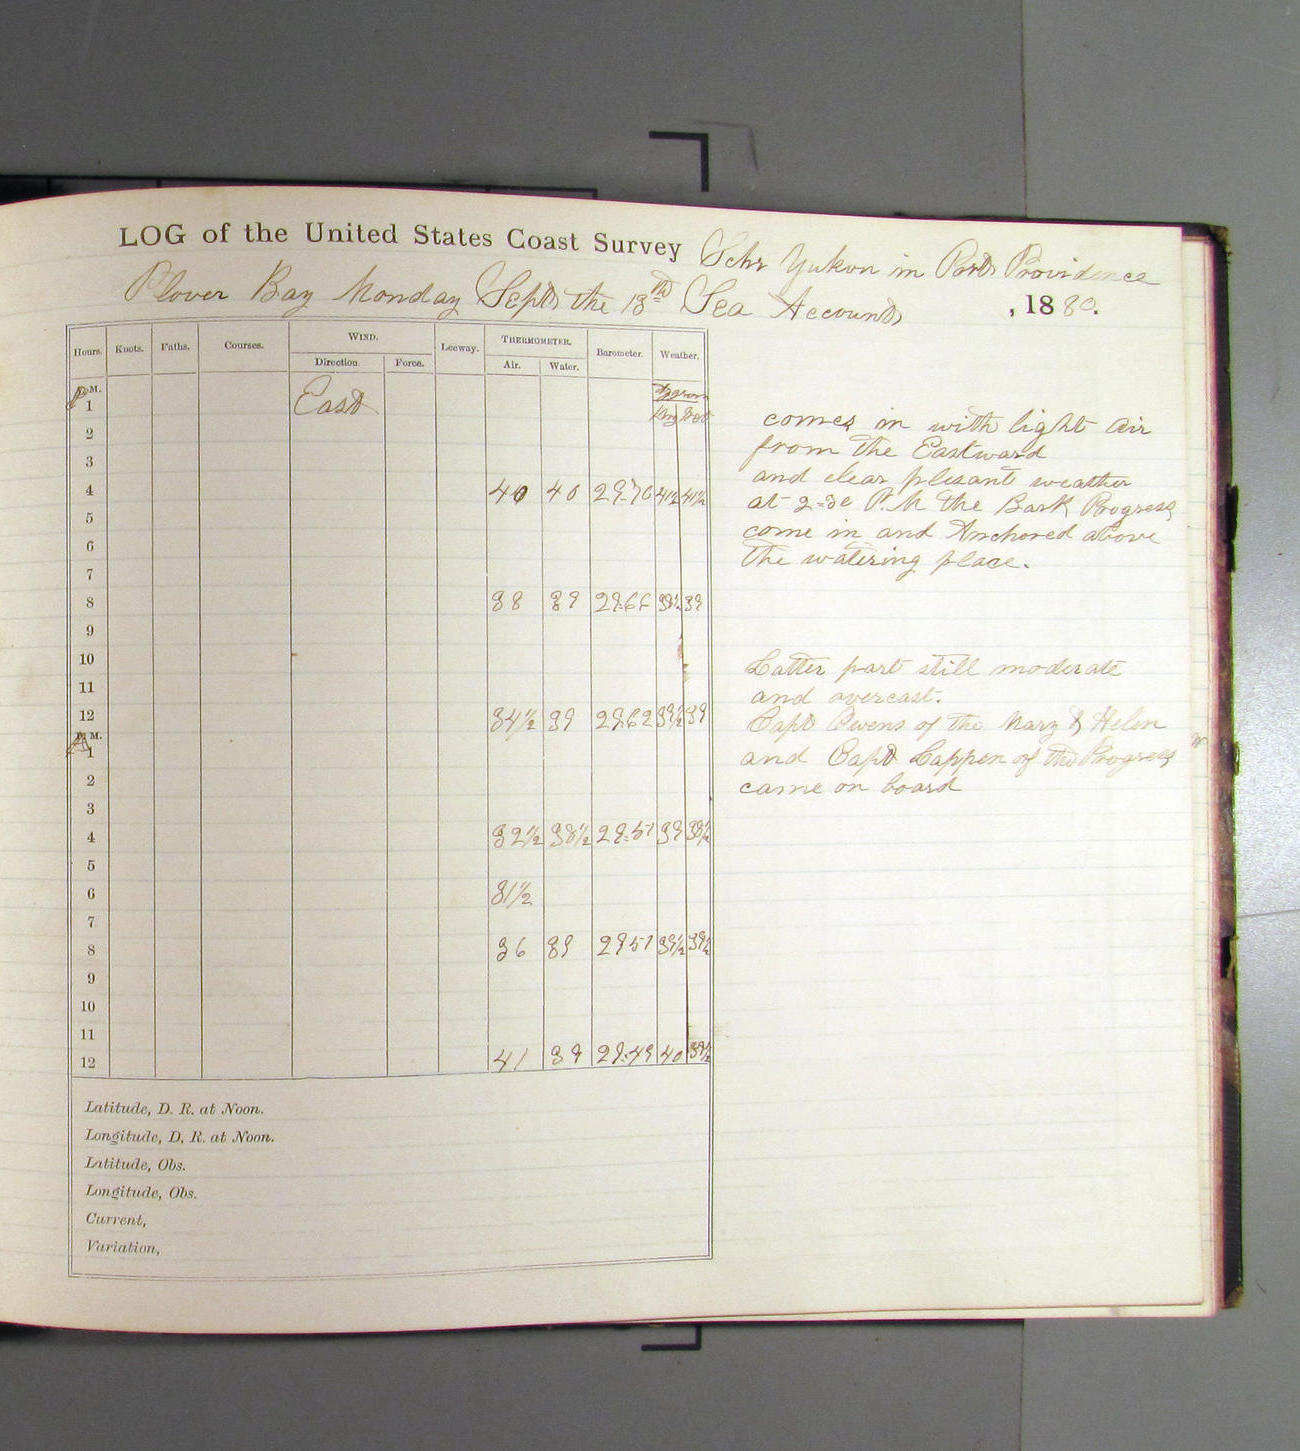 LOG of the United States Coast Survey Schr Yukon in Port Providence
Plover Bay Monday Sept the 13th Sea Account, 1880.
Hours. Knots. Faths. Courses. WIND. Leeway. THERMOMETER. Barometer. Weather.
Direction. Force. Air. Water.
P.M.
1 East
2
3
4 40 40 29.70 41½ 41½
5
6
7
8 38 39 29.66 39½ 39
9
10
11
12 34½ 39 29.62 39½ 39
A.M.
1
2
3
4 32½ 38½ 29.57 39 38½
5
6 31½
7
8 36 39 29.51 39½ 39½
9
10
11
12 41 39 29.49 40 39½
Latitude, D. R. at Noon.
Longitude, D. R. at Noon.
Latitude, Obs.
Longitude, Obs.
Current,
Variation,
comes in with light air
from the Eastward
and clear plesant weather
at 2-30 P.M the Bark Progress
come in and Anchored above
the watering place.
Latter part still moderate
and overcast.
Capt Owens of the Mary & Helen
and Capt Lappen of the Progress
came on board